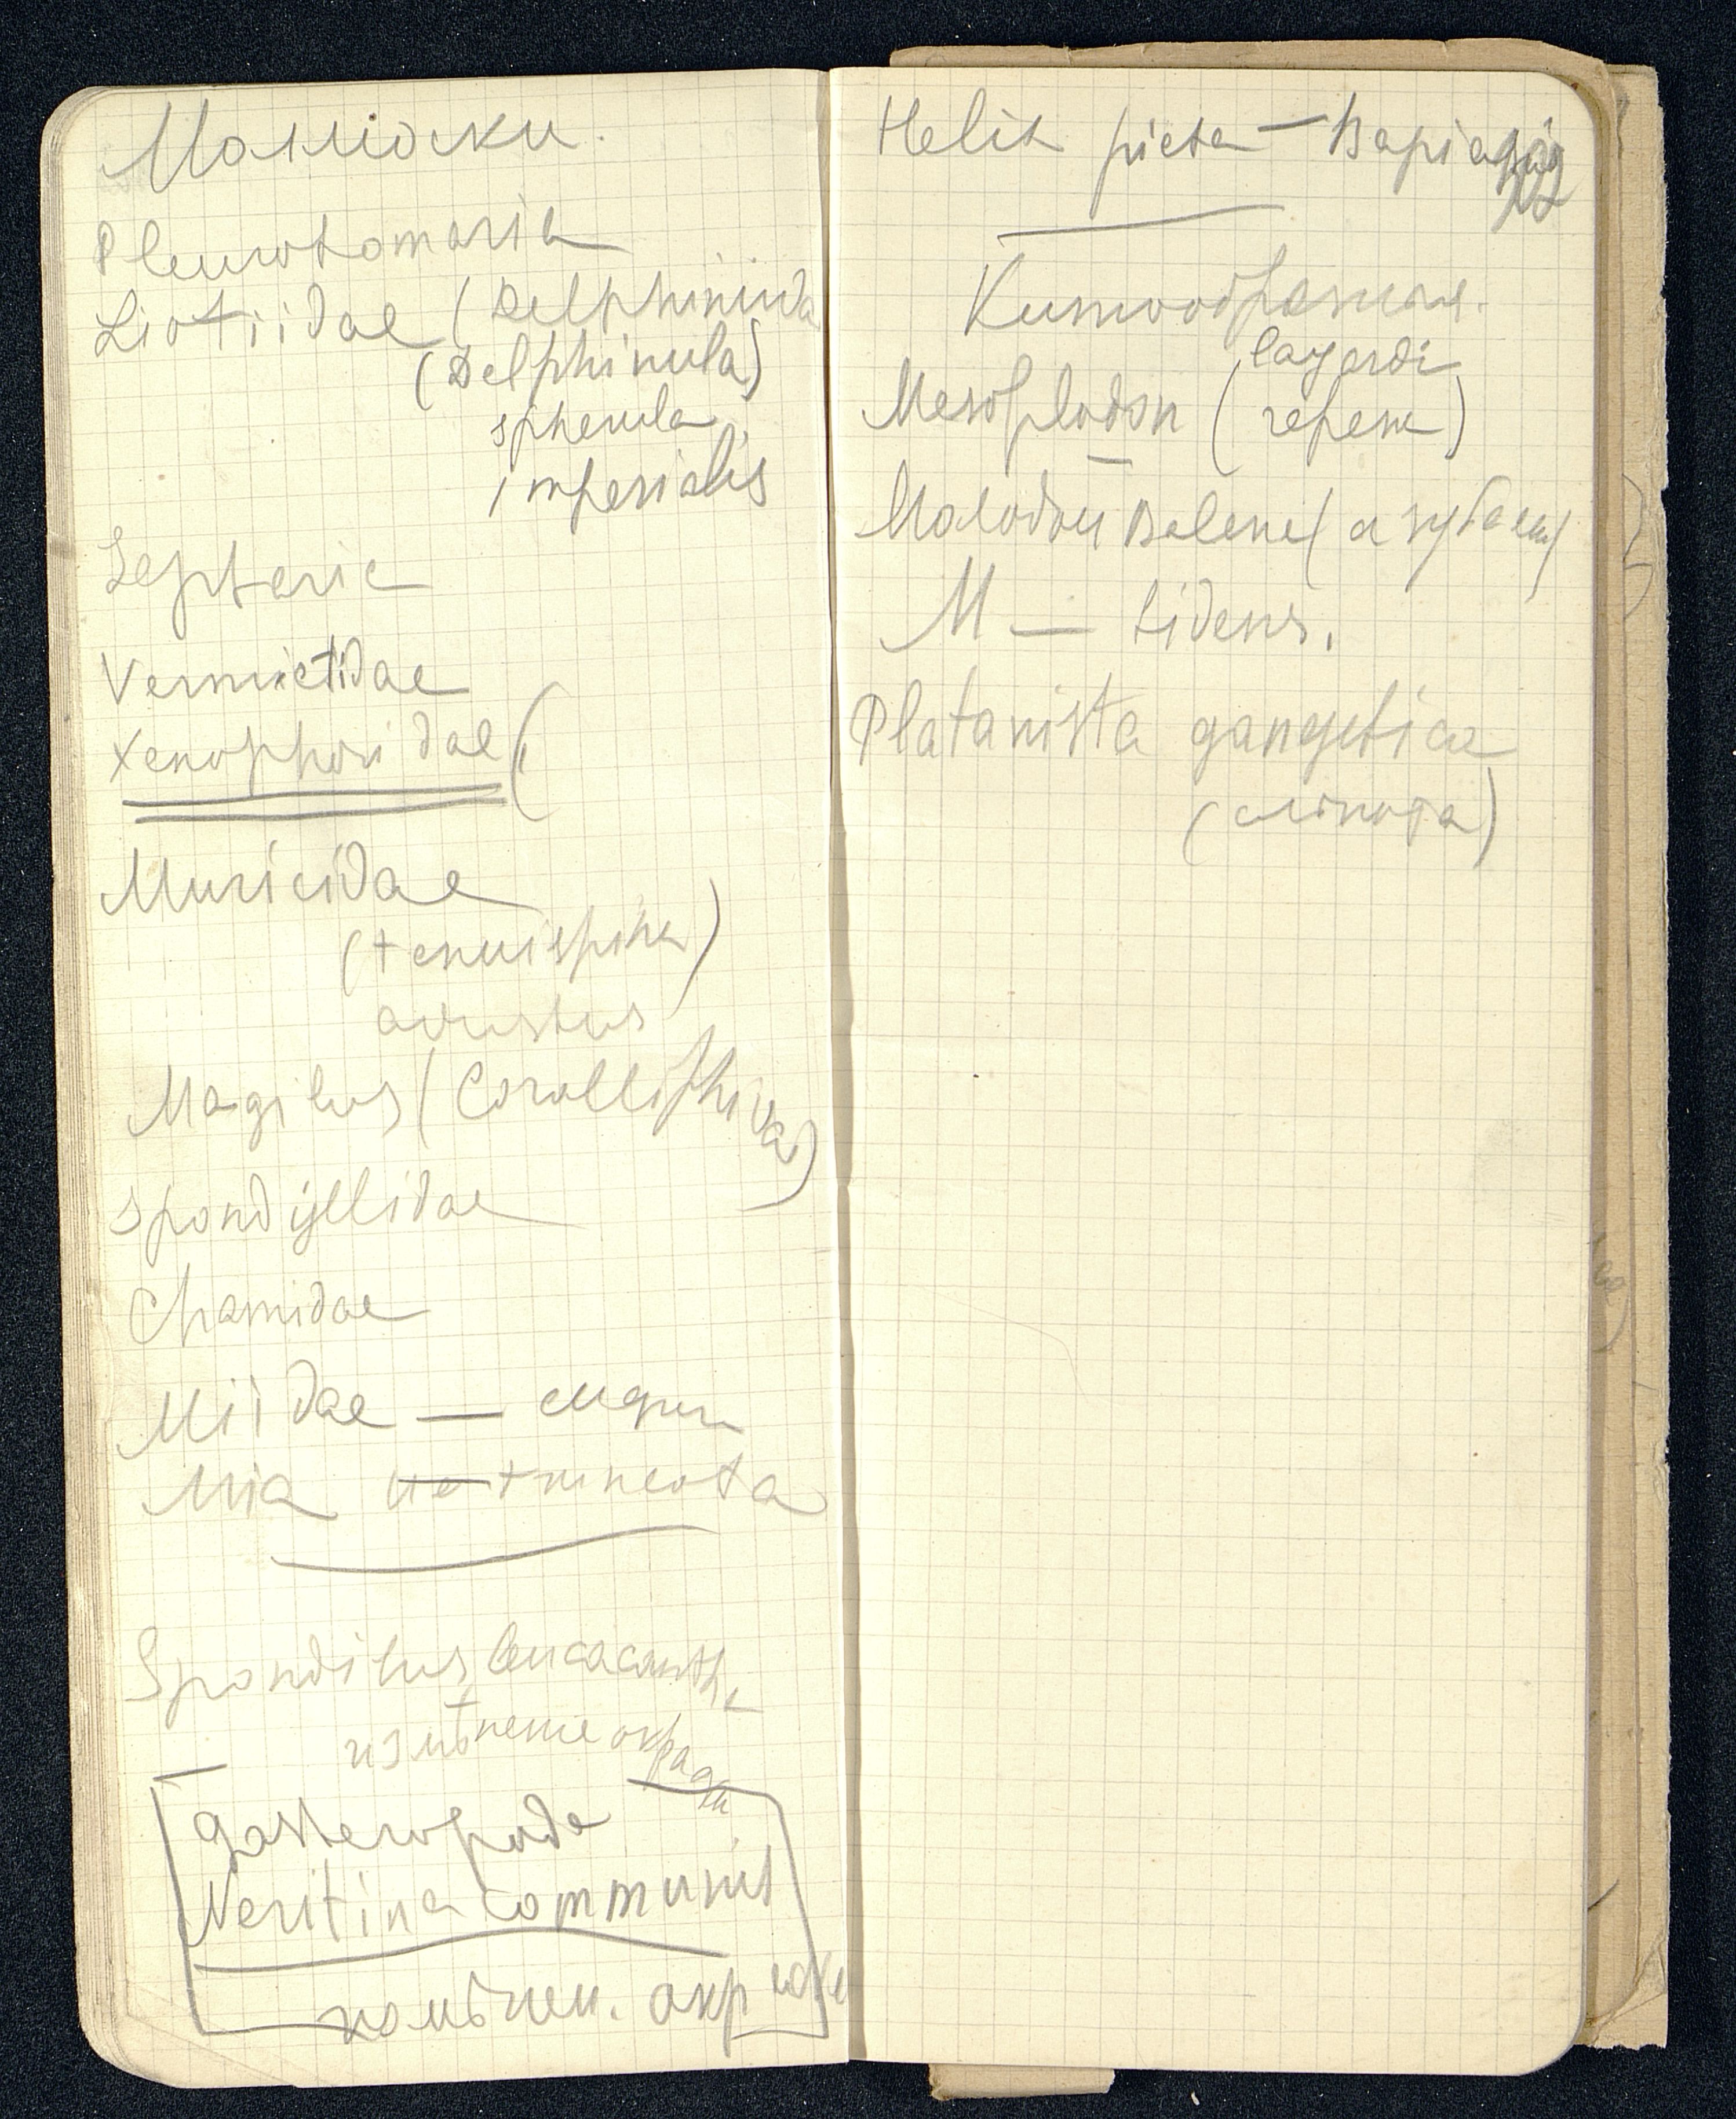 Молюски.
Pleurotomaria
Liotiidae (Delphinula
(Delphinula)
spherula
imperialis
Septaria
Vermetidae
Xenophoridae (
Muricidae
(tenuispina)
adustus
Magilus (Coralliophila)
Spondyllidae
Chamidae
Miidae —
Mia truncata
Spondilus leucacantha
измѣнение окраски
Gasteropoda
Neritina communis
измѣнен. окраски
Helix picta — Вариация
Китообразные.
layardi
Mesoplodon (череп)
Молодой Balene (с зубами)
M — bidens.
Platanista gangetica
(слепота)